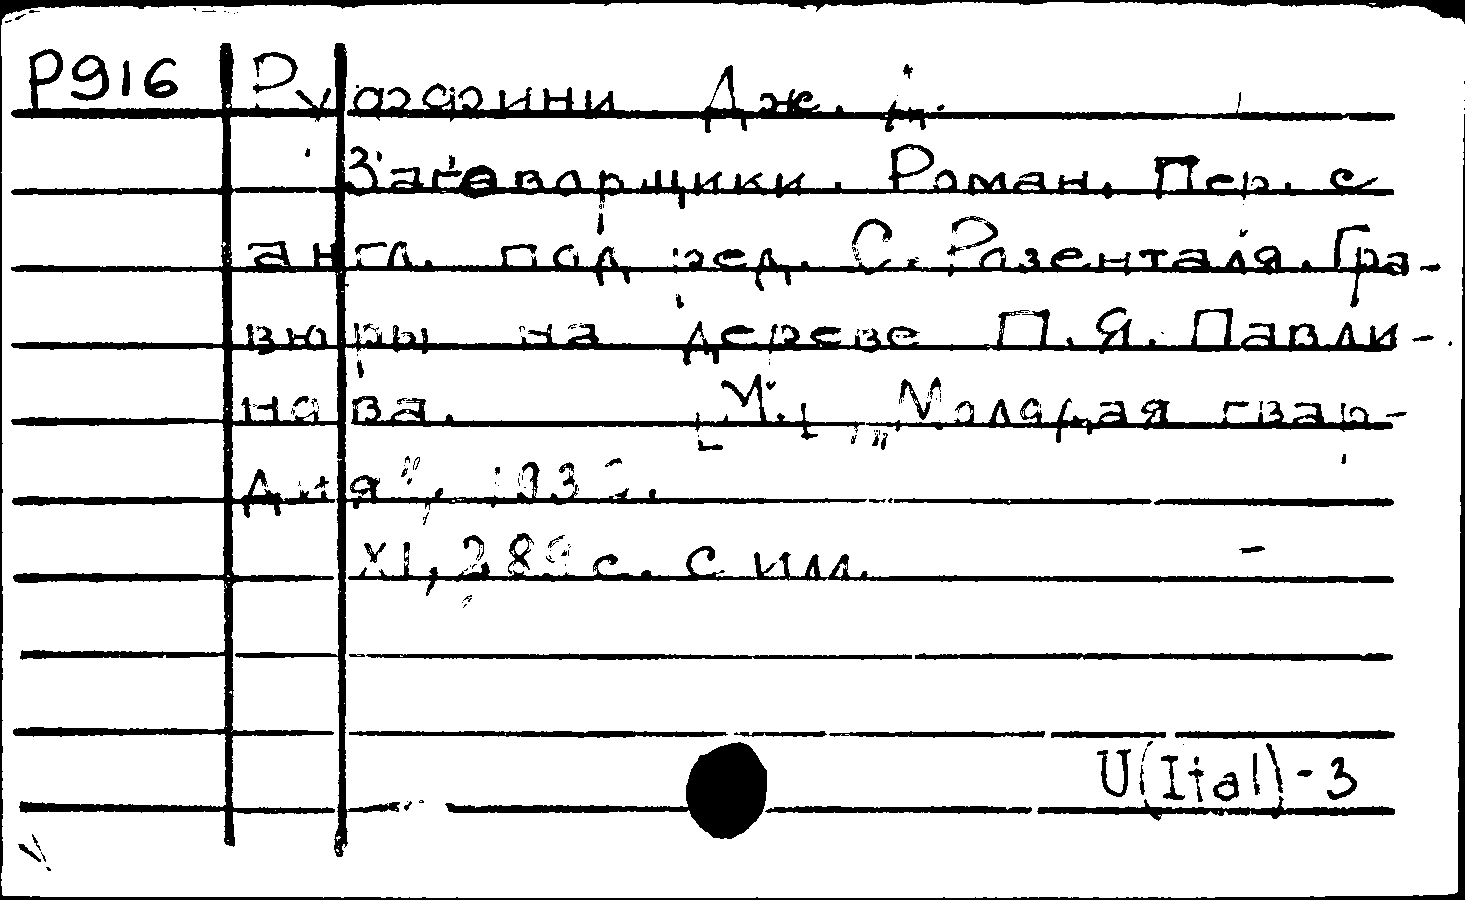 Р916 Руффини Дж. Д.
Заговорщики. Роман. Пер. с
англ. под ред. С. Розенталя. Гра-
вюры на дереве П. Я. Павли-
нова. [М.], „Молодая гвар-
дия",
XI, 289 с. с илл.
U(Ital)-3